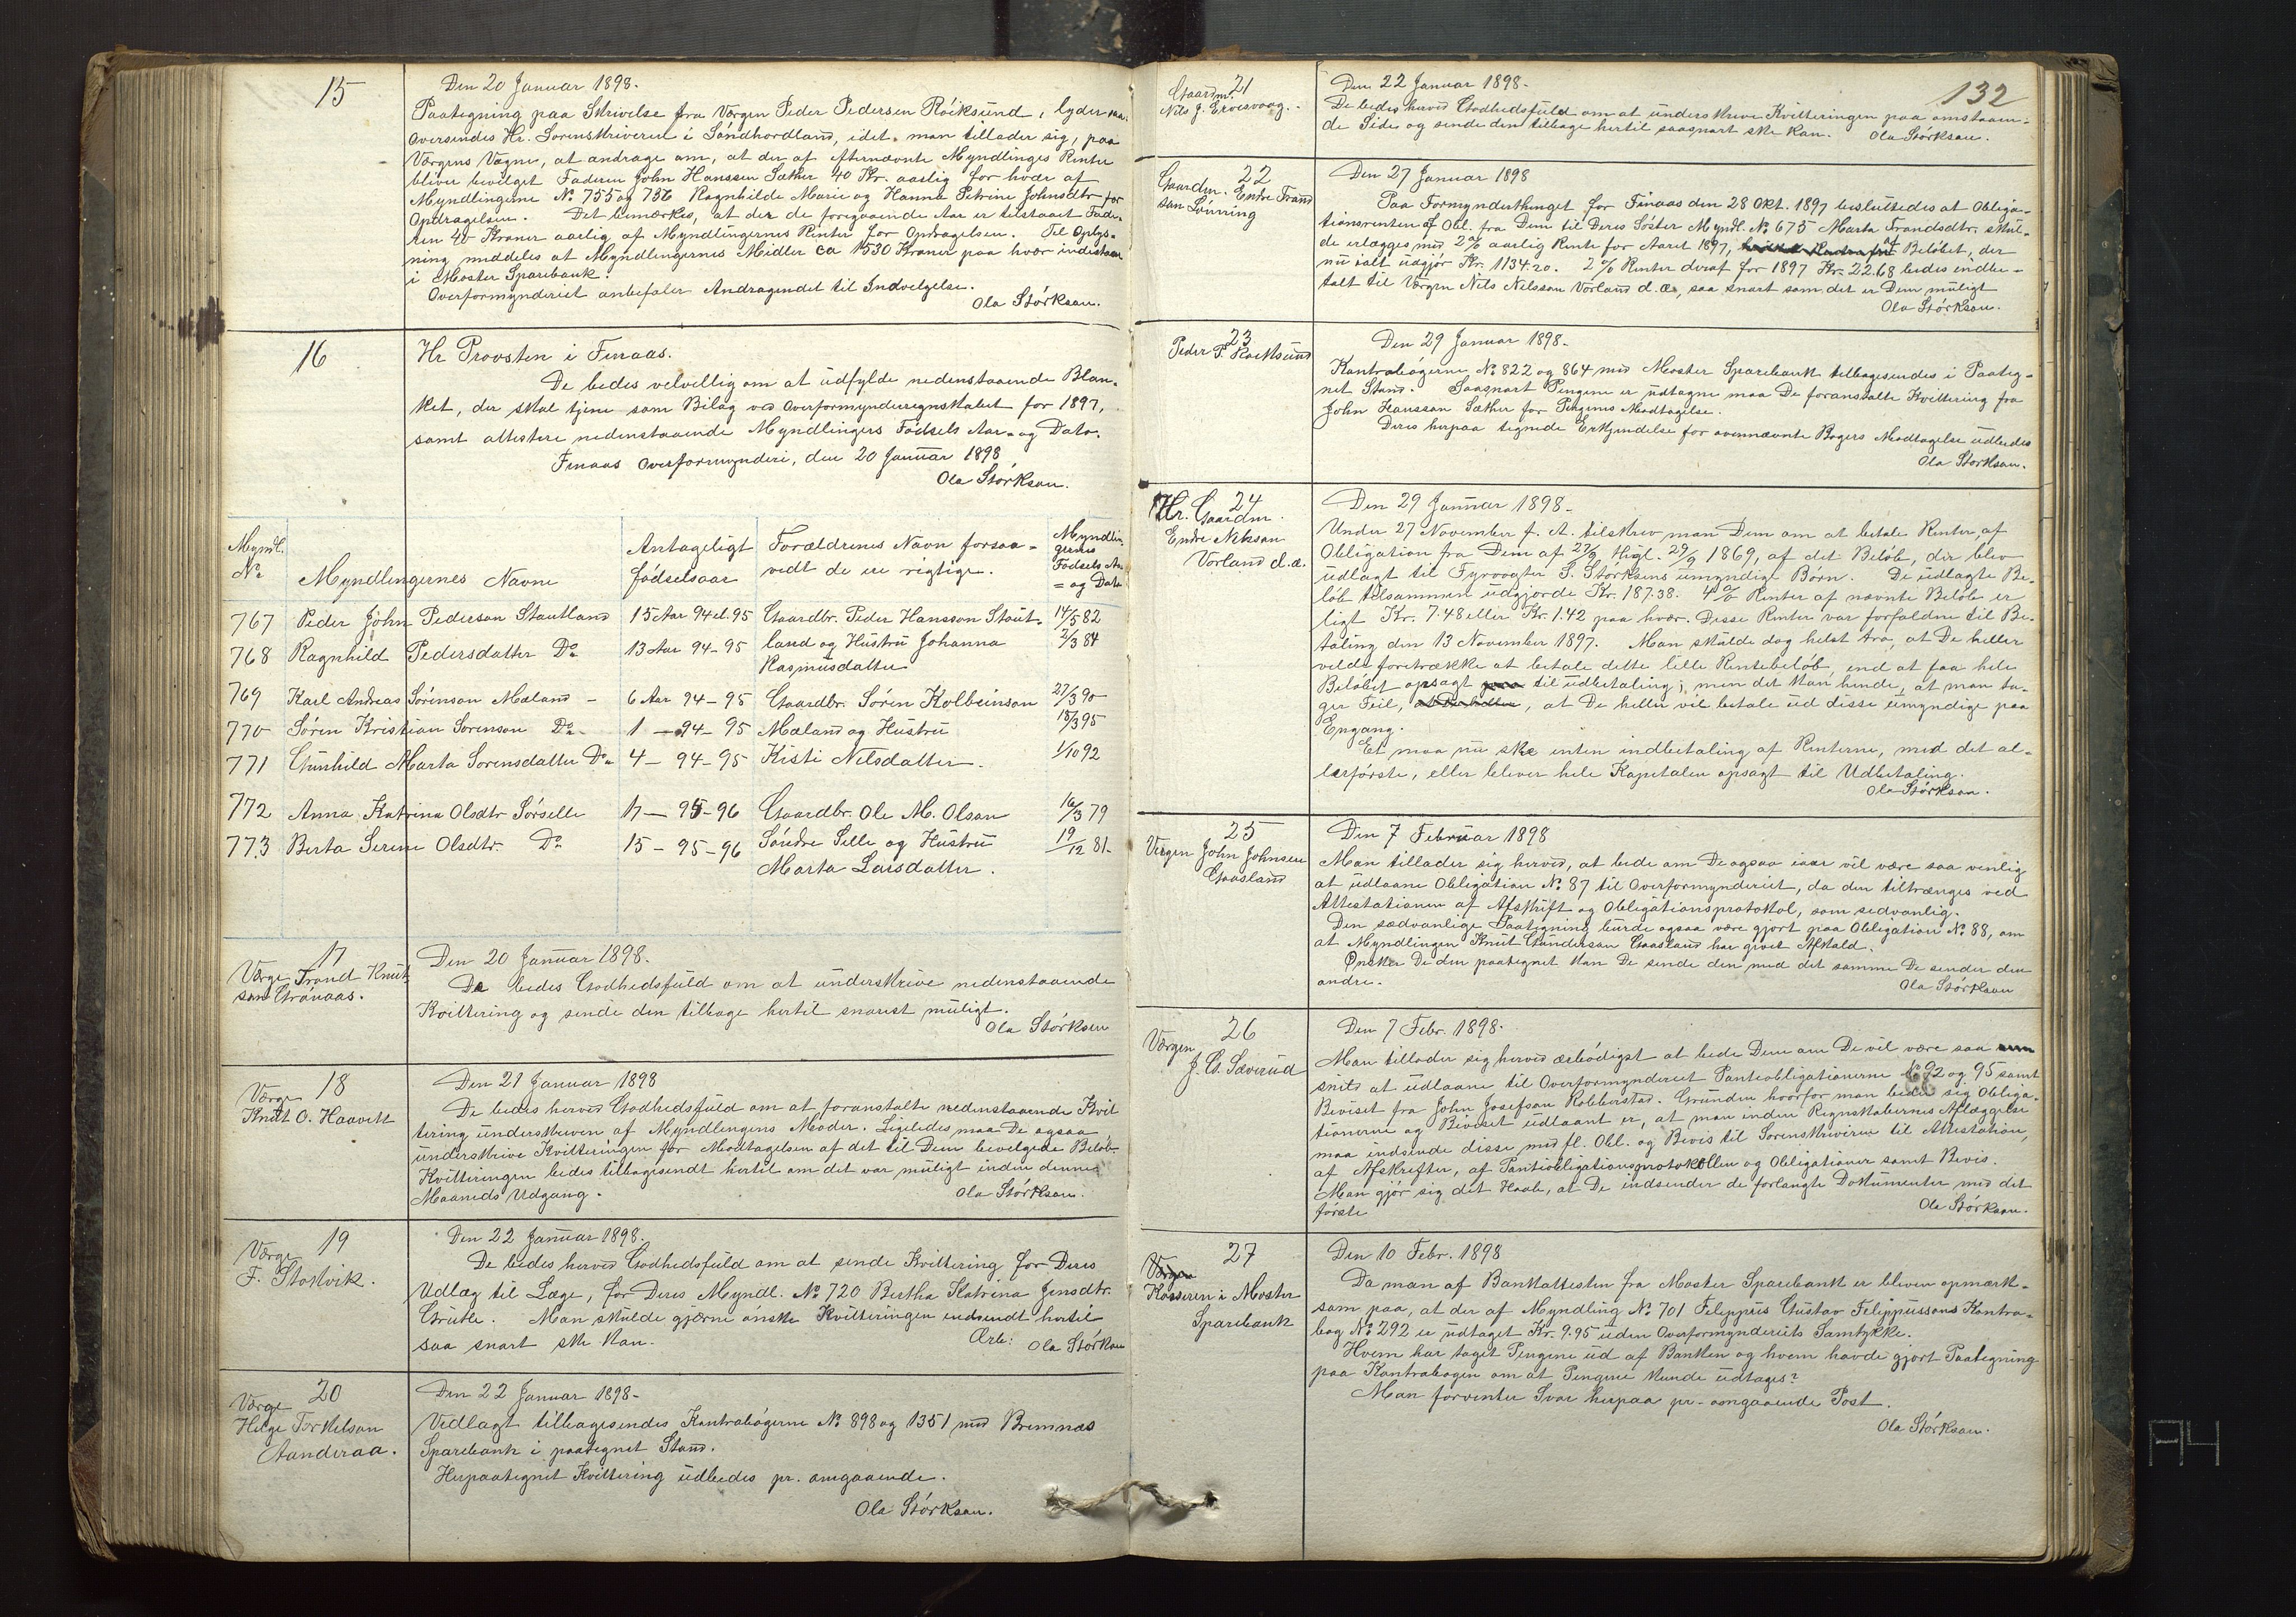 15
Den 20 Januar 1898.
Paategning paa Skrivelse fra Værgen Peder Pedersen Röiksund, lyder saa:
Oversendes Hr. Sorenskriveren i Söndhordland, idet man tillader sig, paa
Værgens Vegne, at andrage om, at der af efternævnte Myndlinges Renter
bliver bevilget Faderen John Hanssen Sæther 40 Kr. aarlig for hver af
Myndlingerne No 755 og 756 Ragnhilde Marie og Hanna Petrine Johnsdtr for
Opdragelsen. Det bemærkes, at der de foregaaende Aar er tilstaaet Fade-
ren 40 Kroner aarlig af Myndlingernes Renter for Opdragelsen. Til Oplys-
ning meddeles at Myndlingernes Midler ca 1530 Kroner paa hver indestaar
i Moster Sparebank.
Overformynderiet anbefaler Andragendet til Indvelgelse.
Ola Störksen.
16
Hr Provsten i Finaas.
De bedes velvillig om at udfylde nedenstaaende Blan-
ket, der skal tjene som Bilag ved Overformynderregnskabet for 1897,
samt attestere nedenstaaende Myndlingers Fødsels Aar- og Dato.
Finaas Overformynderi, den 20 Januar 1898
Ola Störksen.
Myndl. No
Myndlingernes Navne
Antageligt fødselsaar
Forældrenes Navn forsaa-
vedt de ere rigtige.
Myndlin-
gernes
Fødsels Aar
= og Dato
767 Peder John Pederson Stautland 15 Aar 94 el. 95 Gaardbr. Peder Hansson Staut- 14/5 82
768 Ragnhild Pedersdatter Do 13 Aar 94-95 land og Hustru Johanna 2/3 84
Rasmusdatter
769 Karl Andreas Sörenson Mæland - 6 Aar 94-95 Gaardbr. Sören Kolbeinson 27/3 90
770 Sören Kristian Sorenson Do 1 - 94-95 Mæland og Hustru 18/3 95
771 Gunhild Marta Sorensdatter Do 4 - 94-95 Kisti Nilsdatter. 1/10 92
772 Anna Katrina Olsdtr Sörselle 17 - 95-96 Gaardbr. Ole M. Olson 16/3 79
773 Berta Serine Olsdtr. Do 15 - 95-96 Söndre Selle og Hustru 19/12 81.
Marta Larsdatter.
17
Værge Trond Knut-
son Grönaas.
Den 20 Januar 1898.
De bedes Godhedsfuld om at underskrive nedenstaaende
Kvittering og sende den tilbage hertil snarest muligt.
Ola Störksen
18
Værge
Knut O. Haavik
Den 21 Januar 1898
De bedes herved Godhedsfuld om at foranstalte nedenstaaende Kvit
tering underskreven af Myndlingens Moder. Ligeledes maa De ogsaa
underskrive Kvitteringen for Modtagelsen af det til Dem bevilgede Beløb.
Kvitteringen bedes tilbagesendt hertil om det var muligt inden denne
Maaneds Udgang.
Ola Störksen.
19
Værge
F. Stokvik.
Den 22 Januar 1898.
De bedes herved Godhedsfuld om at sende Kvittering for Deres
Udlæg til Læge, for Deres Myndl. No 720 Bertha Katrina Jensdtr.
Grutle. Man skulde gjerne ønske Kvitteringen indsendt hertil
saa snart ske kan.
Ærb: Ola Störksen
20
Værge
Helge Torkelson
Aanderaa.
Den 22 Januar 1898.
Vedlagt tilbagesendes Kontrabögerne No 898 og 1351 med Bremnæs
Sparebank i paategnet Stand.
Herpaategnet Kvittering udbedes pr. omgaaende.
Ola Störksen.
132
21
Gaardm.
Nils J. Ervesvaag.
Den 22 Januar 1898.
De bedes herved Godhedsfuld om at underskrive Kvitteringen paa omstaaen-
de Side og sende den tilbage hertil saasnart ske kan. Ola Störksen.
22
Gaardm. Endre Trond
son Lönning
Den 27 Januar 1898
Paa Formynderthinget for Finaas den 28 Okt. 1897 besluttedes at Obliga-
tionsrenten af Obl. fra Dem til Deres Söster Myndl. No 675 Marta Trondsdtr. skul-
de erlægges med 2% aarlig Rente for Aaret 1897, af Beløbet, der
nu ialt udgjör Kr. 1134.20. 2% Renter deraf for 1897 Kr. 22.68 bedes indbe-
talt til Værgen Nils Nelsson Vorland d.æ, saa snart som det er Dem muligt
Ola Störksen.
23
Peder P. Röiksund
Den 29 Januar 1898.
Kontrabögerne No 822 og 864 med Moster Sparebank tilbagesendes i Paateg-
net Stand. Saasnart Pengene er udtagne maa De foranstalte Kvittering fra
John Hansson Sæther for Pengenes Modtagelse.
Deres herpaa tegnede Erkjendelse for ovennævnte Bogers Modtagelse udbedes
Ola Störksen.
24
Hr. Gaardm.
Endre Nelsson
Vorland d.æ.
Den 29 Januar 1898.
Under 27 November f. A. tilskrev man Dem om at betale Renter af
Obligation fra Dem af 27/9 thgl. 29/9 1869, af det Beløb, der blev
udlagt til Fyrvogter S. Störksens umyndige Börn. De udlagte Be-
löb tilsammen udgjorde Kr. 187.38. 4% Renter af nævnte Beløb er
ligt Kr. 7.48 eller Kr. 1.42 paa hver. Disse Renter var forfaldne til Be-
taling den 13 November 1897. Man skulde dog helst tro, at De heller
vilde foretrække at betale dette lille Rentebeløb, end at faa hele
Beløbet opsagt til udbetaling; men det kan hende, at man ta-
ger Feil, at De heller vil betale ud disse umyndige paa
Engang.
Et maa nu ske enten indbetaling af Renterne, med det al-
lerförste, eller bliver hele Kapitalen opsagt til Udbetaling.
Ola Störksen.
25
Vergen John Johnsen
Gaasland
Den 7 Februar 1898
Man tillader sig herved, at bede om De ogsaa iaar vil være saa venlig
at udlaane Obligation No 87 til Overformynderiet, da den tiltrænges ved
Attestationen af Afskrift og Obligationsprotokol, som sedvanlig.
Den sædvanlige Paategning burde ogsaa være gjort paa Obligation No 88, om
at Myndlingen Knut Gunderson Gaasland har givet Afkald.
Ønsker De den paategnet kan De sende den med det samme De sender den
andre.
Ola Störksen
26
Værgen
J. G. Sæverud
Den 7 Febr. 1898.
Man tillader sig herved ærbödigst at bede Dem om De vil være saa
snild at udlaane til Overformynderiet Panteobligationerne No 92 og 95 samt
Beviset fra John Josefson Robberstad. Grunden hvorfor man beder sig Obliga-
tionerne og Beviset udlaant er, at man inden Regnskabernes Aflæggelse
maa indsende disse med fl. Obl. og Bevis til Sorenskriveren til Attestation,
af Afskrifter, af Panteobligationsprotokollen og Obligationer samt Bevis.
Man gjör sig det Haab, at De indsender de forlangte Dokumenter med det
förste
Ola Störksen.
27
Værgen
Kasseren i Moster
Sparebank
Den 10 Febr. 1898
Da man af Bankattesten fra Moster Sparebank er bleven opmærk-
som paa, at der af Myndling No 701 Filippus Gustav Filippussons Kontra-
bog No 292 er udtaget Kr. 9.95 uden Overformynderiets Samtykke.
Hvem har taget Pengene ud af Banken og hvem havde gjort Paategning
paa Kontrabogen om at Pengene kunde udtages?
Man forventer Svar herpaa pr. omgaaende Post.
Ola Störksen.
A4